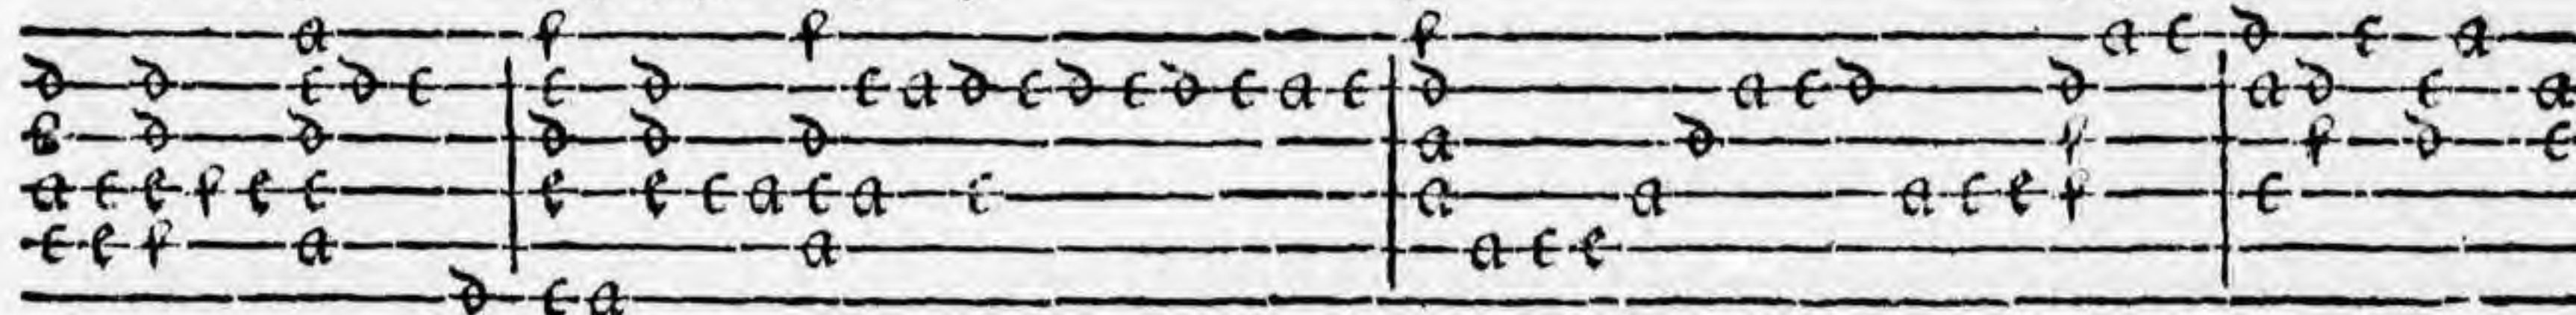 a f f f a c d c a
d d c d c c d c a d c d c d c a c d a c d d a d c a
d d d d d a d f f d c
a c e f e c e e c a c a c a a a c e f c
c e f a a a c e
d c a